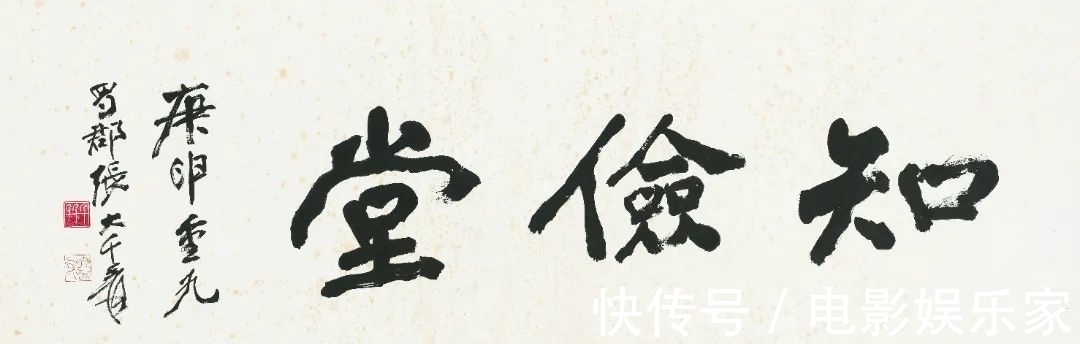 知儉堂
庚申重九
蜀郡張大千爰
快传号 / 电影娱乐家